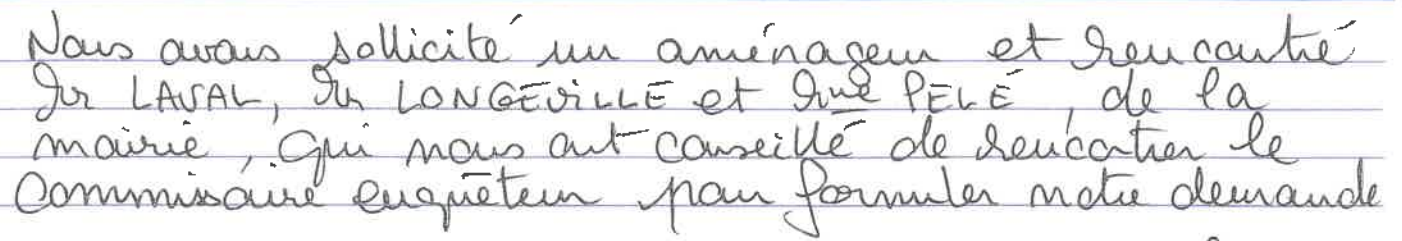 Nous avons sollicité un aménageur et rencontré
Mr LAVAL, Mr LONGEVILLE et Mme PELÉ, de la
mairie, qui nous ont conseillé de rencontrer le
Commissaire enquêteur pour formuler notre demande